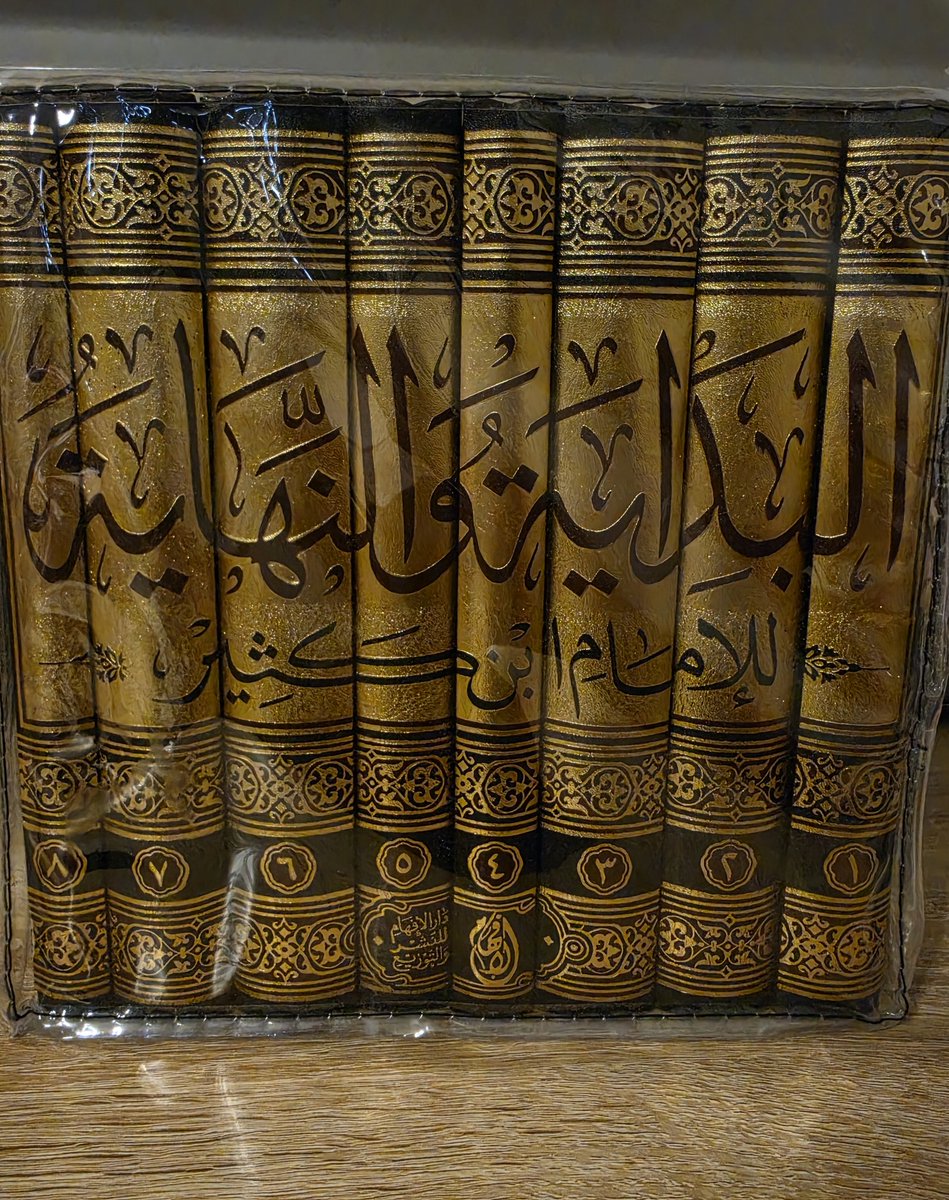 البِدَايَةُ وَالنِّهَايَةُ
لِلإِمَامِ ابْنِ كَثِيرٍ
١ ٢ ٣ ٤ ٥ ٦ ٧ ٨
دار الأفهام
للنشر
والتوزيع